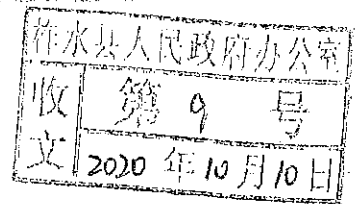 柞水县人民政府办公室
收文
第9号
2020年10月10日